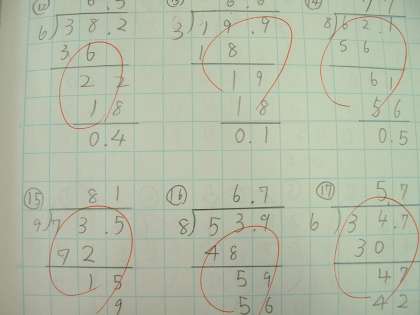 ⑫ 6.3 ⑬ 6.6 ⑭ 7.7
6)38.2 3)19.9 8)62.1
36 18 56
22 19 61
18 18 56
0.4 0.1 0.5
⑮ 81 ⑯ 6.7 ⑰ 5.7
9)73.5 8)53.9 6)34.7
72 48 30
15 59 47
9 56 42